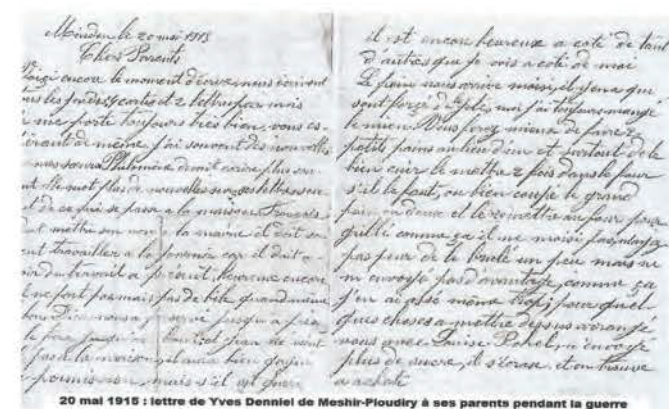 Minden le 20 mai 1915
Chers Parents
Voici encore le moment d'écrire, nous écrivons
tous les jours, cartes et 2 lettres par mois
je me porte toujours très bien, vous es-
pérant de même, j'ai souvent des nouvelles
mes sœurs Philomène devrait écrire plus sou-
elle met plus de nouvelles sur ses lettres
de ce qui se passe a la maison. François
mettre son nom a la mairie il doit
travailler a la journée car il doit a-
du travail a présent, heureux encore
ne font pas mais pas de bile quand même
bon Dieu nous a préservé jusqu'a pré-
le fera jusqu'au bout
pas a la maison, il aura bien gagné
permission, mais s'il est guéri
il est encore heureux a coté de tant
d'autres que je vois a coté de moi
Le pain nous arrive moisi, il y en a qui
sont forcé d'jeté, moi j'ai toujours mangé
le mien. Vous ferez mieux de faire 2
petits pains au lieu d'un et surtout de le
bien cuir le mettre 2 fois dans le four
s'il le faut, ou bien coupé le grand
pain en deux et le remettre au four pour
grillé comme ça il ne moisi pas, n'ayez
pas peur de le brulé un peu mais ne
m'envoyé pas d'avantage, comme ça
j'en ai assé même trop; pour quel-
ques choses a mettre dessus
vous avec Louise Pohel, n'envoyé
plus de sucre, il s'écrase, et on trouve
a acheté
20 mai 1915 : lettre de Yves Denniel de Meshir-Ploudiry à ses parents pendant la guerre